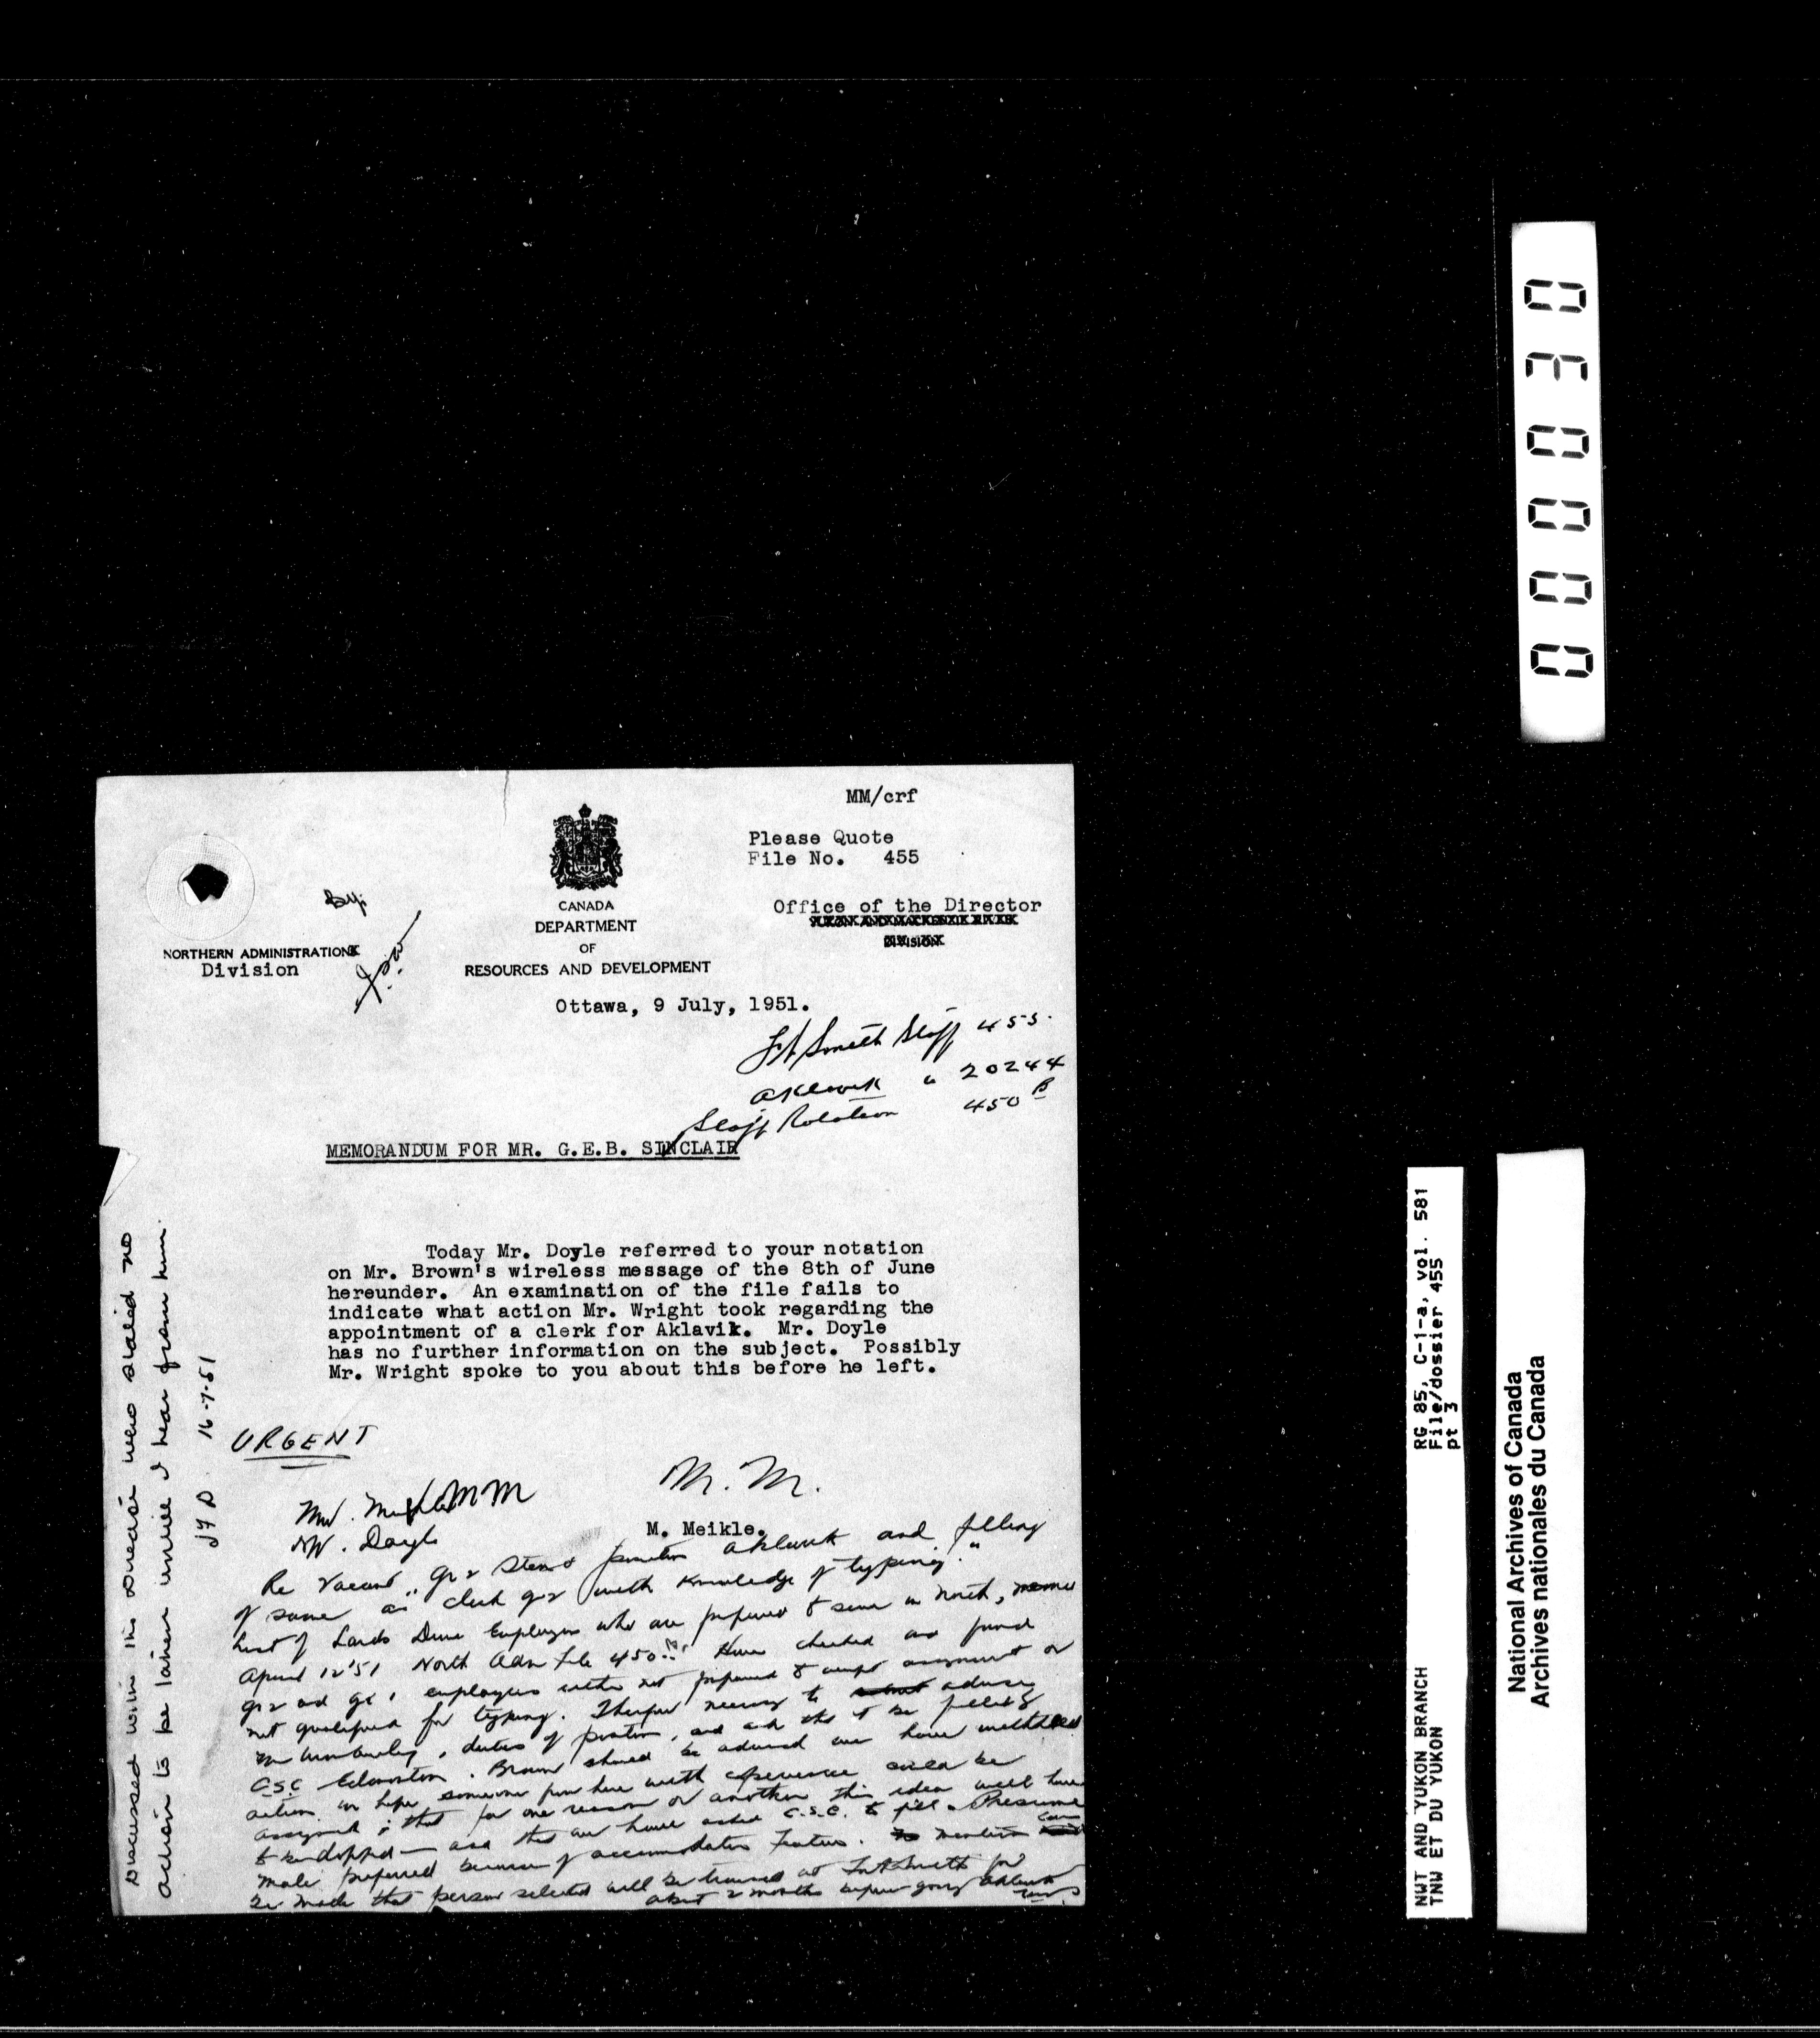 MM/crf
Please Quote
File No. 455
CANADA
DEPARTMENT
OF
RESOURCES AND DEVELOPMENT
Office of the Director
NORTHERN ADMINISTRATION
Division
Ottawa, 9 July, 1951.
Ft Smith Staff 455.
Aklavik " 20244
Staff Rotation 450 B
MEMORANDUM FOR MR. G.E.B. SINCLAIR
Today Mr. Doyle referred to your notation
on Mr. Brown's wireless message of the 8th of June
hereunder. An examination of the file fails to
indicate what action Mr. Wright took regarding the
appointment of a clerk for Aklavik. Mr. Doyle
has no further information on the subject. Possibly
Mr. Wright spoke to you about this before he left.
URGENT
M. M.
M. Meikle.
Mr. MM
Mr. Doyle
Re Vacant "Gr 2 Steno position Aklavik and filling
of same as clerk gr 2 with knowledge of typing."
List of Lands Employees who are prepared to serve in North,
April 12'51 North Adm file 450 Have checked and found
gr 2 and gr 1 employees either not prepared to accept assignment or
not qualified for typing. Therefore necessary to advise
duties of position, and ask that it be filled
CSC Edmonton. Brown should be advised we have withheld
action in hope someone from here with experience could be
assigned; that for one reason or another this idea will have
to be dropped — and that we have asked C.S.C. to fill. Presume
male preferred because of accommodation. mention
be made that person selected will be trained at Fort Smith for
about 2 months before going Aklavik
Discussed with this who stated no
action to be taken until I hear from him.
JYD 16-7-51
000030
RG 85, C-1-a, vol. 581
File/dossier 455
pt 3
NWT AND YUKON BRANCH
TNW ET DU YUKON
National Archives of Canada
Archives nationales du Canada